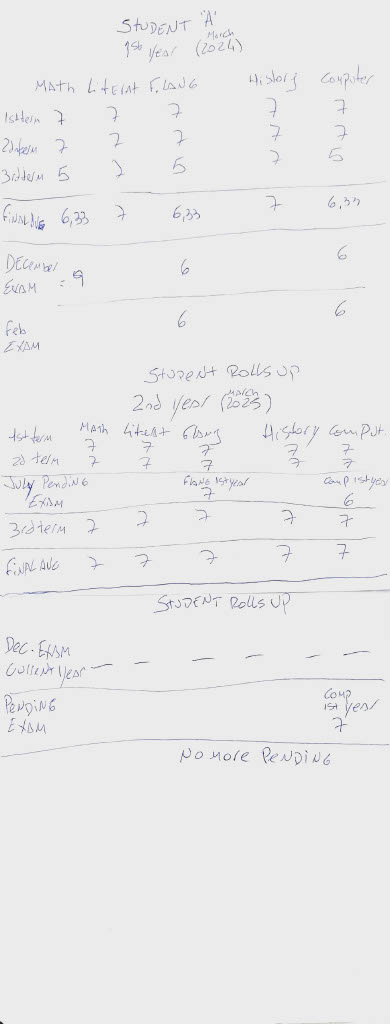 STUDENT "A"
1st year (March 2024)
Math Literat F. Lang History Computer
1st term 7 7 7 7 7
2nd term 7 7 7 7 7
3rd term 5 7 5 7 5
Final AVG 6,33 7 6,33 7 6,33
December 6 6
Exam : 9
Feb 6 6
Exam
Student Rolls up
2nd year (March 2025)
Math Literat F. lang History Comput.
1st term 7 7 7 7 7
2d term 7 7 7 7 7
July Pending F Lang 1st year Comp 1st year
Exam 7 6
3rd term 7 7 7 7 7
Final AVG 7 7 7 7 7
STUDENT Rolls up
Dec. Exam
Current year — — — — —
Pending Comp
Exam 1st year
7
No more Pending